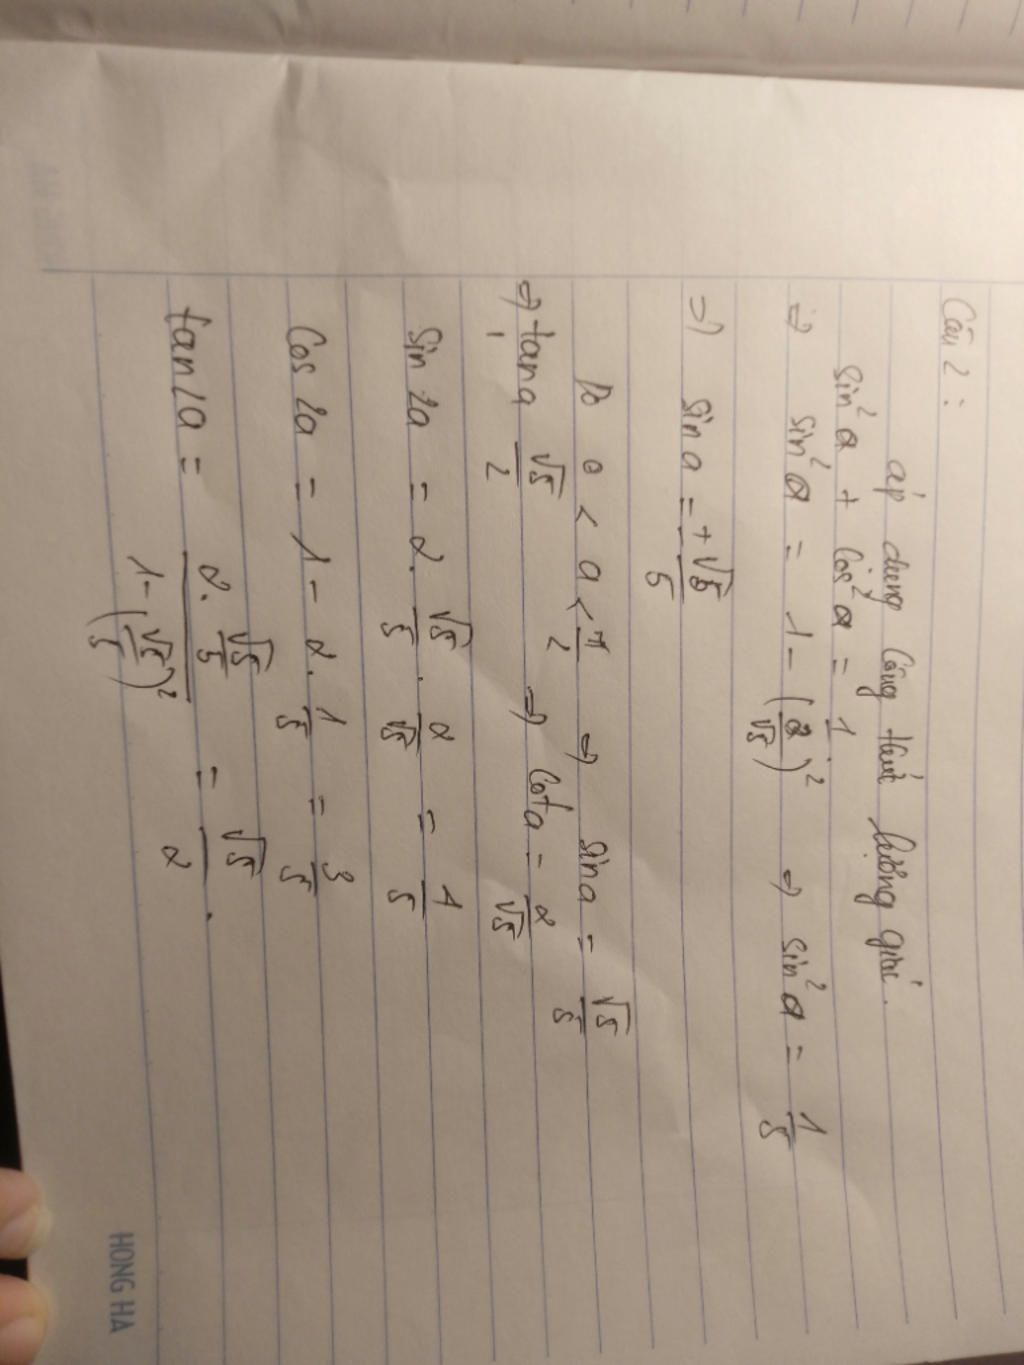 Câu 2:
áp dụng công thức lượng giác.
sin²a + cos²a = 1
⇒ sin²a = 1 - (2/√5)² ⇒ sin²a = 1/5
⇒ sin a = ±√5/5
Do 0 < a < π/2 ⇒ sin a = √5/5
⇒ tan a √5/2 ⇒ cot a = 2/√5
sin 2a = 2. √5/5 . 2/√5 = 4/5
Cos 2a = 1 - 2. 1/5 = 3/5
tan 2a = (2. √5/5)/(1 - (√5/5)²) = √5/2.
HONG HA